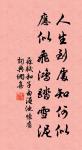 人生到處知何似
應似飛鴻踏雪泥
蘇軾和子由澠池懷舊
詞典網集